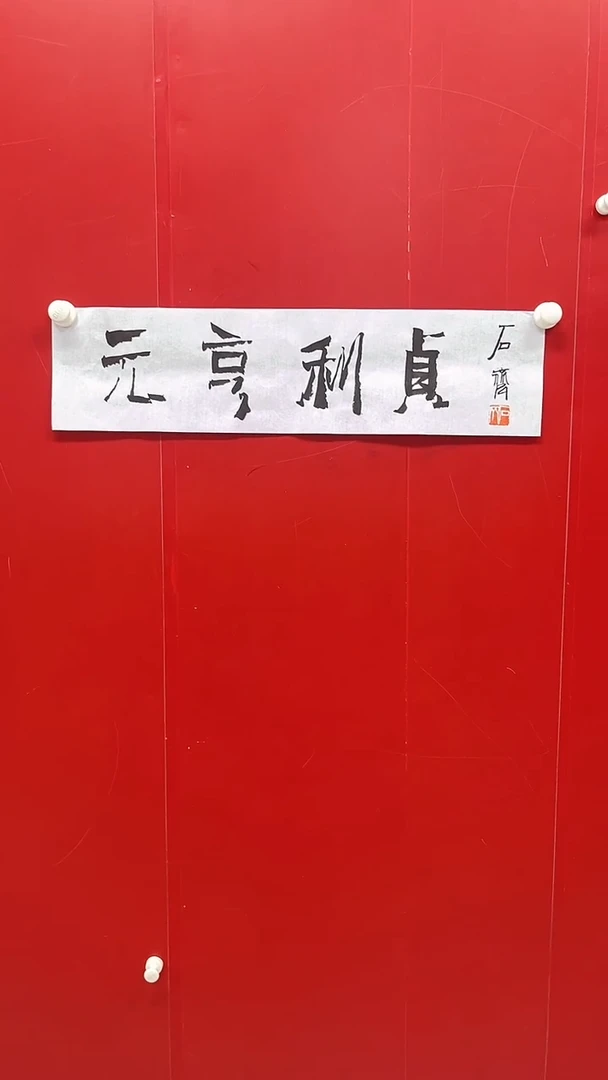 元亨利貞
石齊